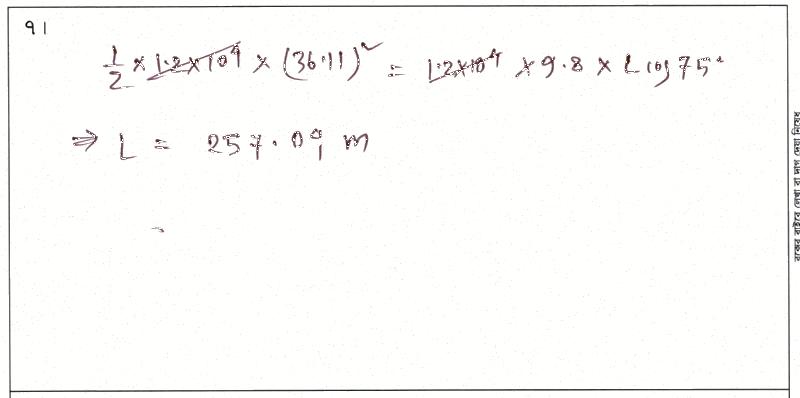 ৭।
1/2 × 1.2×10⁴ × (36.11)² = 1.2×10⁴ × 9.8 × L cos 75°
⇒ L = 257.09 m
বক্সের বাইরে লেখা বা দাগ দেয়া নিষেধ